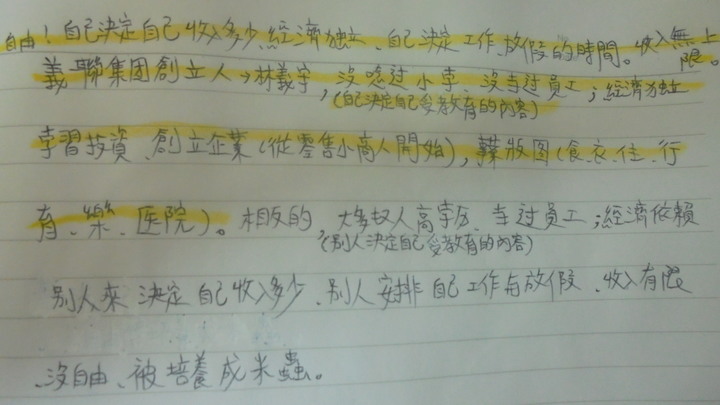 自由!自己決定自己收入多少、經濟独立、自己決定工作、放假的時間。收入無上限。
義聯集團創立人→林義守,沒唸过小李、沒寺过員工;經濟独立
(自己決定自己受教育的內客)
李習投資、創立企業(從零售小商人開始),葉版图(食、衣、住、行
育、樂、医院)。相反的,大多數人高学历、寺过員工;經濟依賴
(別人決定自己受教育的內客)
別人來決定自己收入多少、別人安排自己工作与放假、收入有限
、沒自由、被培養成米蟲。